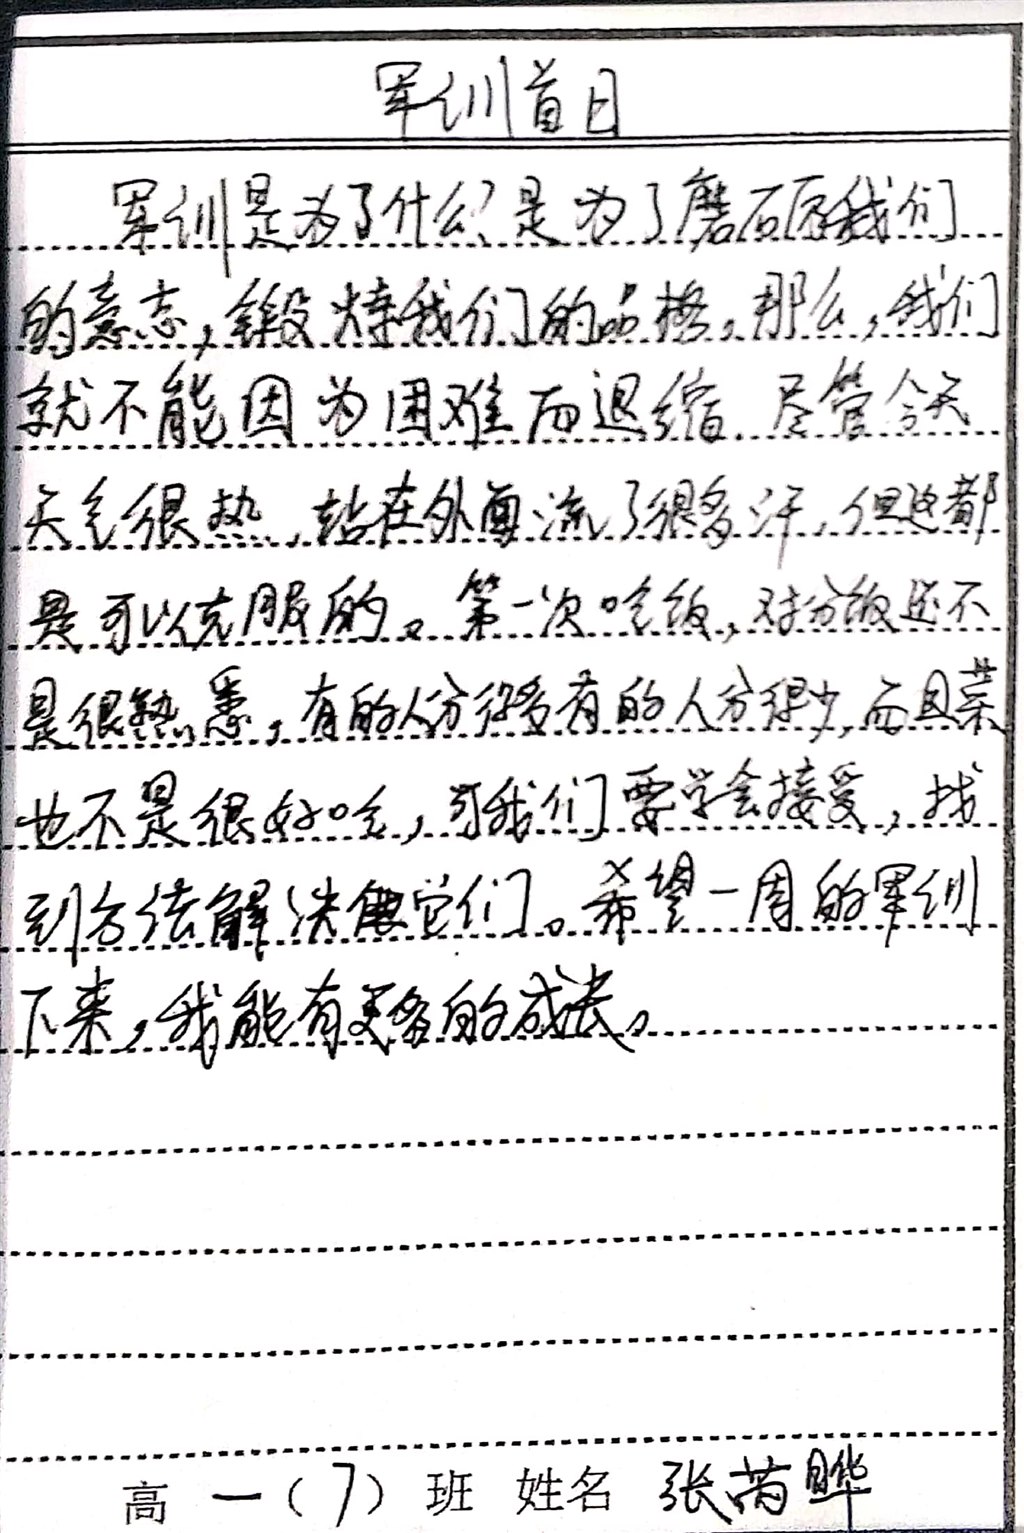 军训首日
军训是为了什么?是为了磨砺我们
的意志,锻炼我们的品格。那么,我们
就不能因为困难而退缩.尽管今天
天气很热,站在外面流了很多汗,但这都
是可以克服的。第一次吃饭,对分饭还不
是很熟悉,有的人分得多有的人分得少,而且菜
也不是很好吃,可我们要学会接受,找
到方法解决它们。希望一周的军训
下来,我能有更多的成长。
高一(7)班 姓名 张芮晔